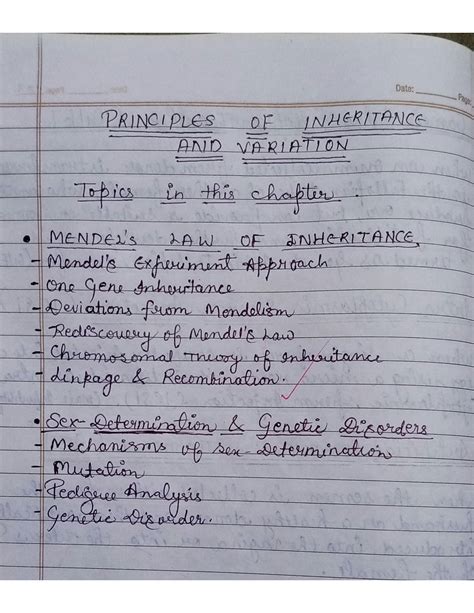 Date:
Page
PRINCIPLES OF INHERITANCE
AND VARIATION
Topics in this chapter.
• MENDEL's LAW OF INHERITANCE,
- Mendel's Experiment Approach
- One Gene Inheritance
- Deviations from Mendelism
- Rediscovery of Mendel's Law
- Chromosomal Theory of Inheritance
- Linkage & Recombination.
• Sex-Determination & Genetic Disorders
- Mechanisms of Sex-Determination
- Mutation
- Pedigree Analysis
- Genetic Disorder.